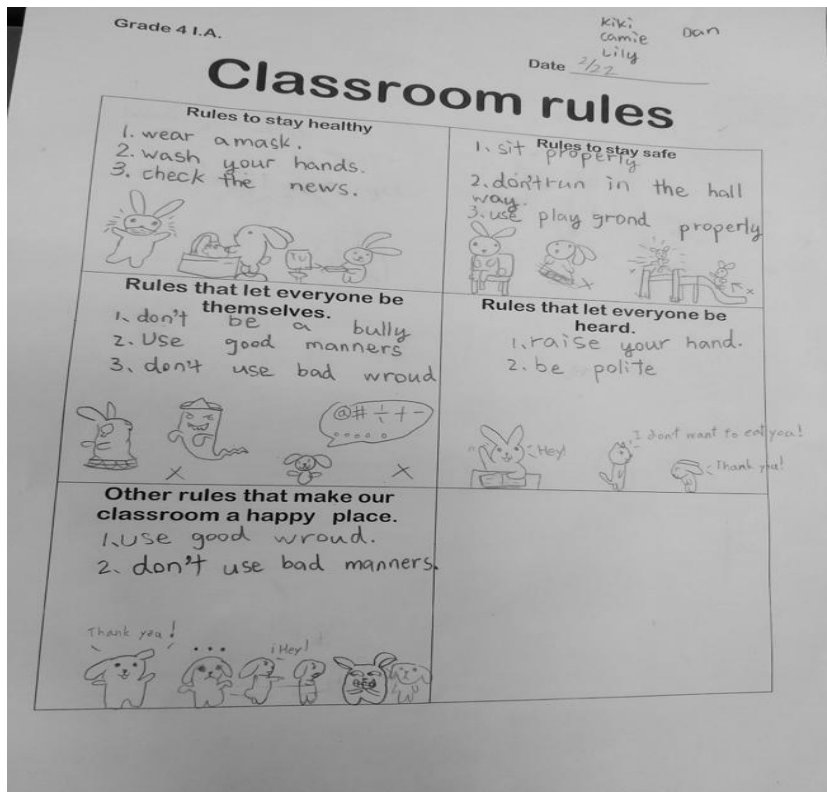 Grade 4 I.A.
Kiki
Dan
Camie
Lily
Date 2/22
Classroom rules
Rules to stay healthy
1. wear a mask.
2. wash your hands.
3. check the news.
TV
Rules to stay safe
1. sit properly
2. don't run in the hall
way.
3. use play grond properly
Rules that let everyone be
themselves.
1. don't be a bully
2. Use good manners
3. don't use bad wroud
@#÷+-
Rules that let everyone be
heard.
1. raise your hand.
2. be polite
Hey!
I don't want to eat you!
Thank you!
Other rules that make our
classroom a happy place.
1. use good wroud.
2. don't use bad manners.
Thank you!
...
Hey!